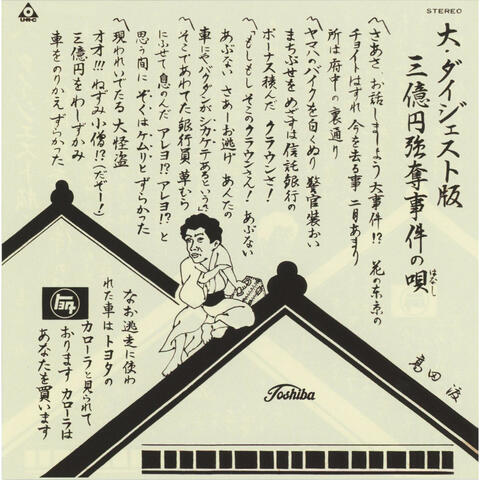 URC
STEREO
大・ダイジェスト版
三億円強奪事件の唄
はなし
高田渡
〽さあさ、お話しましょう大事件!? 花の東京の
チョイトはずれ 今を去る事 二月あまり
所は府中の裏通り
〽ヤマハのバイクを白くぬり 警官装おい
まちぶせを めざすは信託銀行の
ボーナス積んだ クラウンさ!
〽「もしもし そこのクラウンさん! あぶない
あぶない さあーお逃げ あんたの
車にやバクダンが シカケテあるという」
〽そこであわてた銀行員 草むら
にふせて 息のんだ アレヨ!? アレヨ!?と
思う間に ぞくはケムリとずらかった
〽現われいでたる 大怪盗
オオ!!! ねずみ小僧!?(だぞー!)
三億円を わしずかみ
車をのりかえ ずらかった
なお逃走に使わ
れた車はトヨタの
カローラと見られて
おります カローラは
あなたを買います
トヨタ
Toshiba